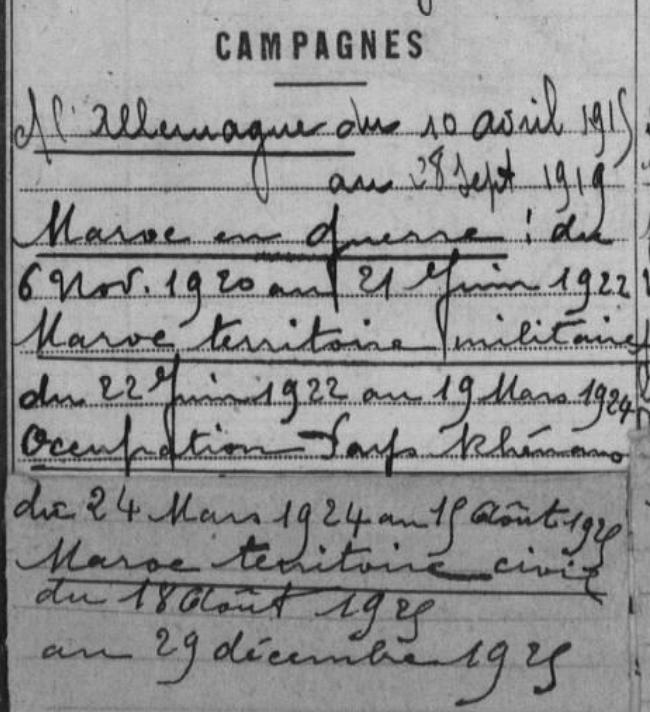 CAMPAGNES
Allemagne du 10 avril 1915
au 28 Sept 1919
Maroc en guerre : du
6 Nov. 1920 au 21 Juin 1922
Maroc territoire militaire
du 22 Juin 1922 au 19 Mars 1924
Occupation Pays Rhénans
du 24 Mars 1924 au 15 Août 1925
Maroc territoire civil
du 18 Août 1925
au 29 décembre 1925